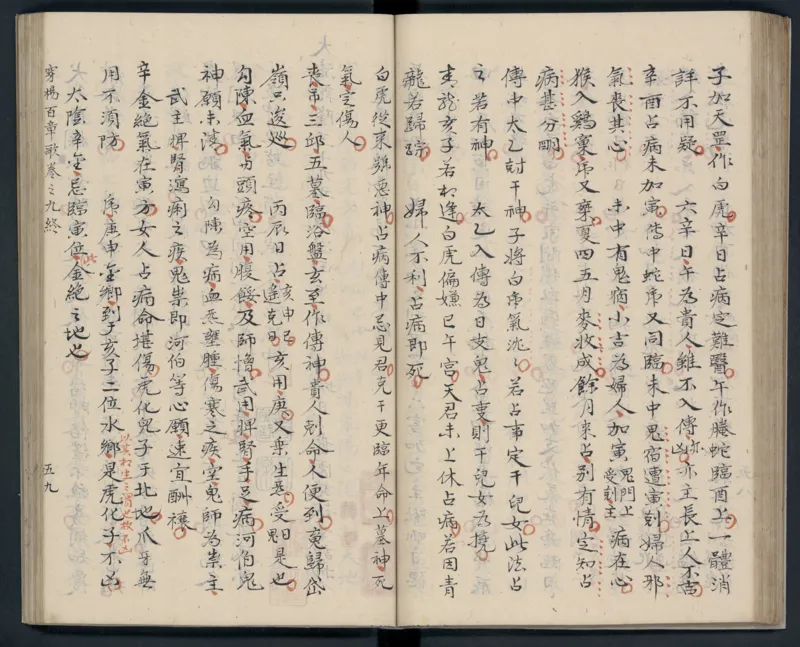 子加天罡作白虎辛日占病定難醫午作螣蛇臨酉上一體消
詳不用疑　六辛日午為貴人雖不入傳亦凶亦主長上人不吉
辛酉占病未加寅傳中蛇席又同臨未中鬼宿遭寅刻婦人邪
氣喪其心　未中有鬼宿小吉為婦人加寅鬼門上受刻主病在心
猴入鷄窠席又乘夏四五月麥收成餘月來占别有情定知占
病甚分明
傳中太乙尅干神子將白席氣沈沈若占事定干兒女此法占
之若有神　太乙入傳為日支鬼占䖍則干兒女為撓
青龍亥子若相逢白虎偏嫌巳午宮天君未上休占病若因青
龍若歸踪　婦人不利占病即死
白虎從來號惡神占病傳中忌見君克干更臨年命上墓神死
氣定傷人
喪吊三邱五墓臨浴盤玄至作傳神貴人剋命人便到䖍歸岱
嶺只逡巡　丙辰日占亥申巳遙克日亥用庚又乗生炁受日鬼是也
勾陳血氣多頭疼空用腹餒及師憎武用脾腎手足病河伯鬼
神願未濃　勾陳為病血炁壅腫傷寒之疾空鬼師為祟主
武主脾腎瀉痢之疾鬼祟即河伯等心願速宜酬禳
辛金絶氣在寅方女人占病命堪傷虎化兒子于北地爪牙無
用不湏防　席庚申金鄉到于亥子二位水鄉是虎化子不凶
太陰辛金忌臨寅位此金絶之地也
穿楊百章歌卷之九終
五九